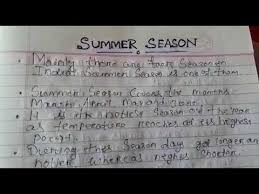 SUMMER SEASON
Mainly there are four Season in
India. Summer Season is one of them.
Summer Season Covers the months
March, April, May and June.
It is the hottest Season of the year
as temperature reaches at its highest
During this Season days get longer and
hotter whereas nights shorten.